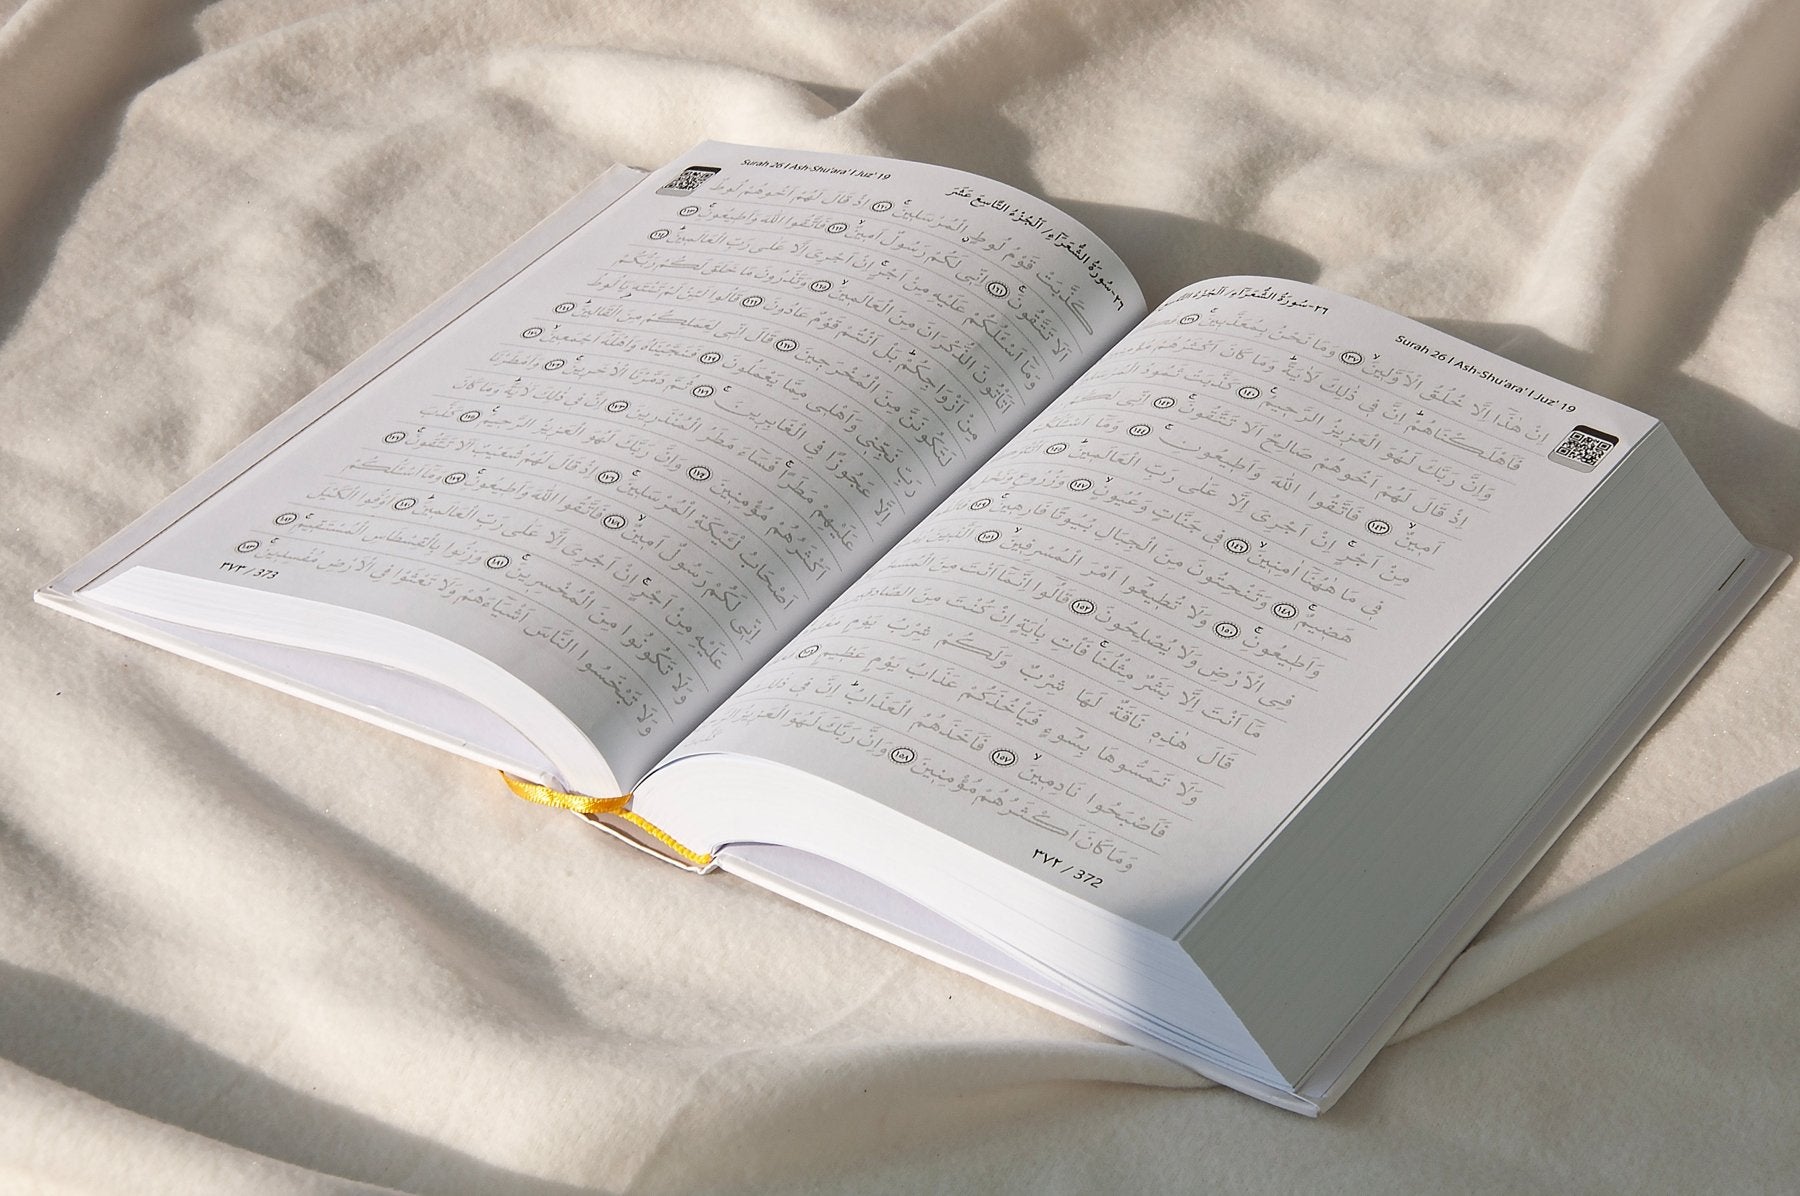 ٢٦-سُورَةُ الشُّعَرَآءِ/ اَلْجُزْءُ
Surah 26 I Ash-Shu'ara' I Juz' 19
اِنْ هٰذَٓا اِلَّا خُلُقُ الْاَوَّلِينَۙ ١٣٧ وَمَا نَحْنُ بِمُعَذَّبِينَۚ ١٣٨
فَاَهْلَكْنَاهُمْۜ اِنَّ فِي ذٰلِكَ لَاٰيَةًۜ وَمَا كَانَ اَكْثَرُهُمْ
وَاِنَّ رَبَّكَ لَهُوَ الْعَزِيزُ الرَّحِيمُ ١٤٠ كَذَّبَتْ ثَمُودُ
اِذْ قَالَ لَهُمْ اَخُوهُمْ صَالِحٌ اَلَا تَتَّقُونَۚ ١٤٢ اِنِّي لَكُمْ
اَمِينٌۙ ١٤٣ فَاتَّقُوا اللّٰهَ وَاَطِيعُونِۚ ١٤٤ وَمَٓا
مِنْ اَجْرٍۚ اِنْ اَجْرِيَ اِلَّا عَلٰى رَبِّ الْعَالَمِينَۜ ١٤٥
فِي مَا هٰهُنَٓا اٰمِنِينَۙ ١٤٦ فِي جَنَّاتٍ وَعُيُونٍۙ ١٤٧ وَزُرُوعٍ
هَضِيمٌۚ ١٤٨ وَتَنْحِتُونَ مِنَ الْجِبَالِ بُيُوتًا فَارِهِينَۚ ١٤٩
وَاَطِيعُونِۚ ١٥٠ وَلَا تُطِيعُٓوا اَمْرَ الْمُسْرِفِينَۙ ١٥١ اَلَّذِينَ
فِي الْاَرْضِ وَلَا يُصْلِحُونَ ١٥٢ قَالُٓوا اِنَّمَٓا اَنْتَ مِنَ
مَٓا اَنْتَ اِلَّا بَشَرٌ مِثْلُنَاۚ فَأْتِ بِاٰيَةٍ اِنْ كُنْتَ مِنَ الصَّادِقِينَ
قَالَ هٰذِهِ نَاقَةٌ لَهَا شِرْبٌ وَلَكُمْ شِرْبُ يَوْمٍ
وَلَا تَمَسُّوهَا بِسُٓوءٍ فَيَأْخُذَكُمْ عَذَابُ يَوْمٍ عَظِيمٍ ١٥٦
فَاَصْبَحُوا نَادِمِينَۙ ١٥٧ فَاَخَذَهُمُ الْعَذَابُۜ اِنَّ فِي ذٰلِكَ
وَمَا كَانَ اَكْثَرُهُمْ مُؤْمِنِينَ ١٥٨ وَاِنَّ رَبَّكَ لَهُوَ الْعَزِيزُ
٣٧٢ / 372
٢٦-سُورَةُ الشُّعَرَآءِ/ اَلْجُزْءُ التَّاسِعَ عَشَرَ
Surah 26 I Ash-Shu'ara' I Juz' 19
كَذَّبَتْ قَوْمُ لُوطٍ الْمُرْسَلِينَۚ ١٦٠ اِذْ قَالَ لَهُمْ اَخُوهُمْ لُوطٌ
اَلَا تَتَّقُونَۚ ١٦١ اِنِّي لَكُمْ رَسُولٌ اَمِينٌۙ ١٦٢ فَاتَّقُوا اللّٰهَ وَاَطِيعُونِۚ ١٦٣
وَمَٓا اَسْـَٔلُكُمْ عَلَيْهِ مِنْ اَجْرٍۚ اِنْ اَجْرِيَ اِلَّا عَلٰى رَبِّ الْعَالَمِينَۜ ١٦٤
اَتَأْتُونَ الذُّكْرَانَ مِنَ الْعَالَمِينَۙ ١٦٥ وَتَذَرُونَ مَا خَلَقَ لَكُمْ رَبُّكُمْ
مِنْ اَزْوَاجِكُمْۜ بَلْ اَنْتُمْ قَوْمٌ عَادُونَ ١٦٦ قَالُوا لَئِنْ لَمْ تَنْتَهِ يَا لُوطُ
لَتَكُونَنَّ مِنَ الْمُخْرَجِينَ ١٦٧ قَالَ اِنِّي لِعَمَلِكُمْ مِنَ الْقَالِينَۜ ١٦٨
رَبِّ نَجِّنِي وَاَهْلِي مِمَّا يَعْمَلُونَ ١٦٩ فَنَجَّيْنَاهُ وَاَهْلَهُٓ اَجْمَعِينَۙ ١٧٠
اِلَّا عَجُوزًا فِي الْغَابِرِينَۚ ١٧١ ثُمَّ دَمَّرْنَا الْاٰخَرِينَۚ ١٧٢ وَاَمْطَرْنَا
عَلَيْهِمْ مَطَرًاۚ فَسَٓاءَ مَطَرُ الْمُنْذَرِينَ ١٧٣ اِنَّ فِي ذٰلِكَ لَاٰيَةًۜ وَمَا كَانَ
اَكْثَرُهُمْ مُؤْمِنِينَ ١٧٤ وَاِنَّ رَبَّكَ لَهُوَ الْعَزِيزُ الرَّحِيمُ ١٧٥ كَذَّبَ
اَصْحَابُ لْـَٔيْكَةِ الْمُرْسَلِينَۚ ١٧٦ اِذْ قَالَ لَهُمْ شُعَيْبٌ اَلَا تَتَّقُونَۚ ١٧٧
اِنِّي لَكُمْ رَسُولٌ اَمِينٌۙ ١٧٨ فَاتَّقُوا اللّٰهَ وَاَطِيعُونِۚ ١٧٩ وَمَٓا اَسْـَٔلُكُمْ
عَلَيْهِ مِنْ اَجْرٍۚ اِنْ اَجْرِيَ اِلَّا عَلٰى رَبِّ الْعَالَمِينَۜ ١٨٠ اَوْفُوا الْكَيْلَ
وَلَا تَكُونُوا مِنَ الْمُخْسِرِينَۚ ١٨١ وَزِنُوا بِالْقِسْطَاسِ الْمُسْتَقِيمِۚ ١٨٢
وَلَا تَبْخَسُوا النَّاسَ اَشْيَٓاءَهُمْ وَلَا تَعْثَوْا فِي الْاَرْضِ مُفْسِدِينَۚ ١٨٣
٣٧٣ / 373